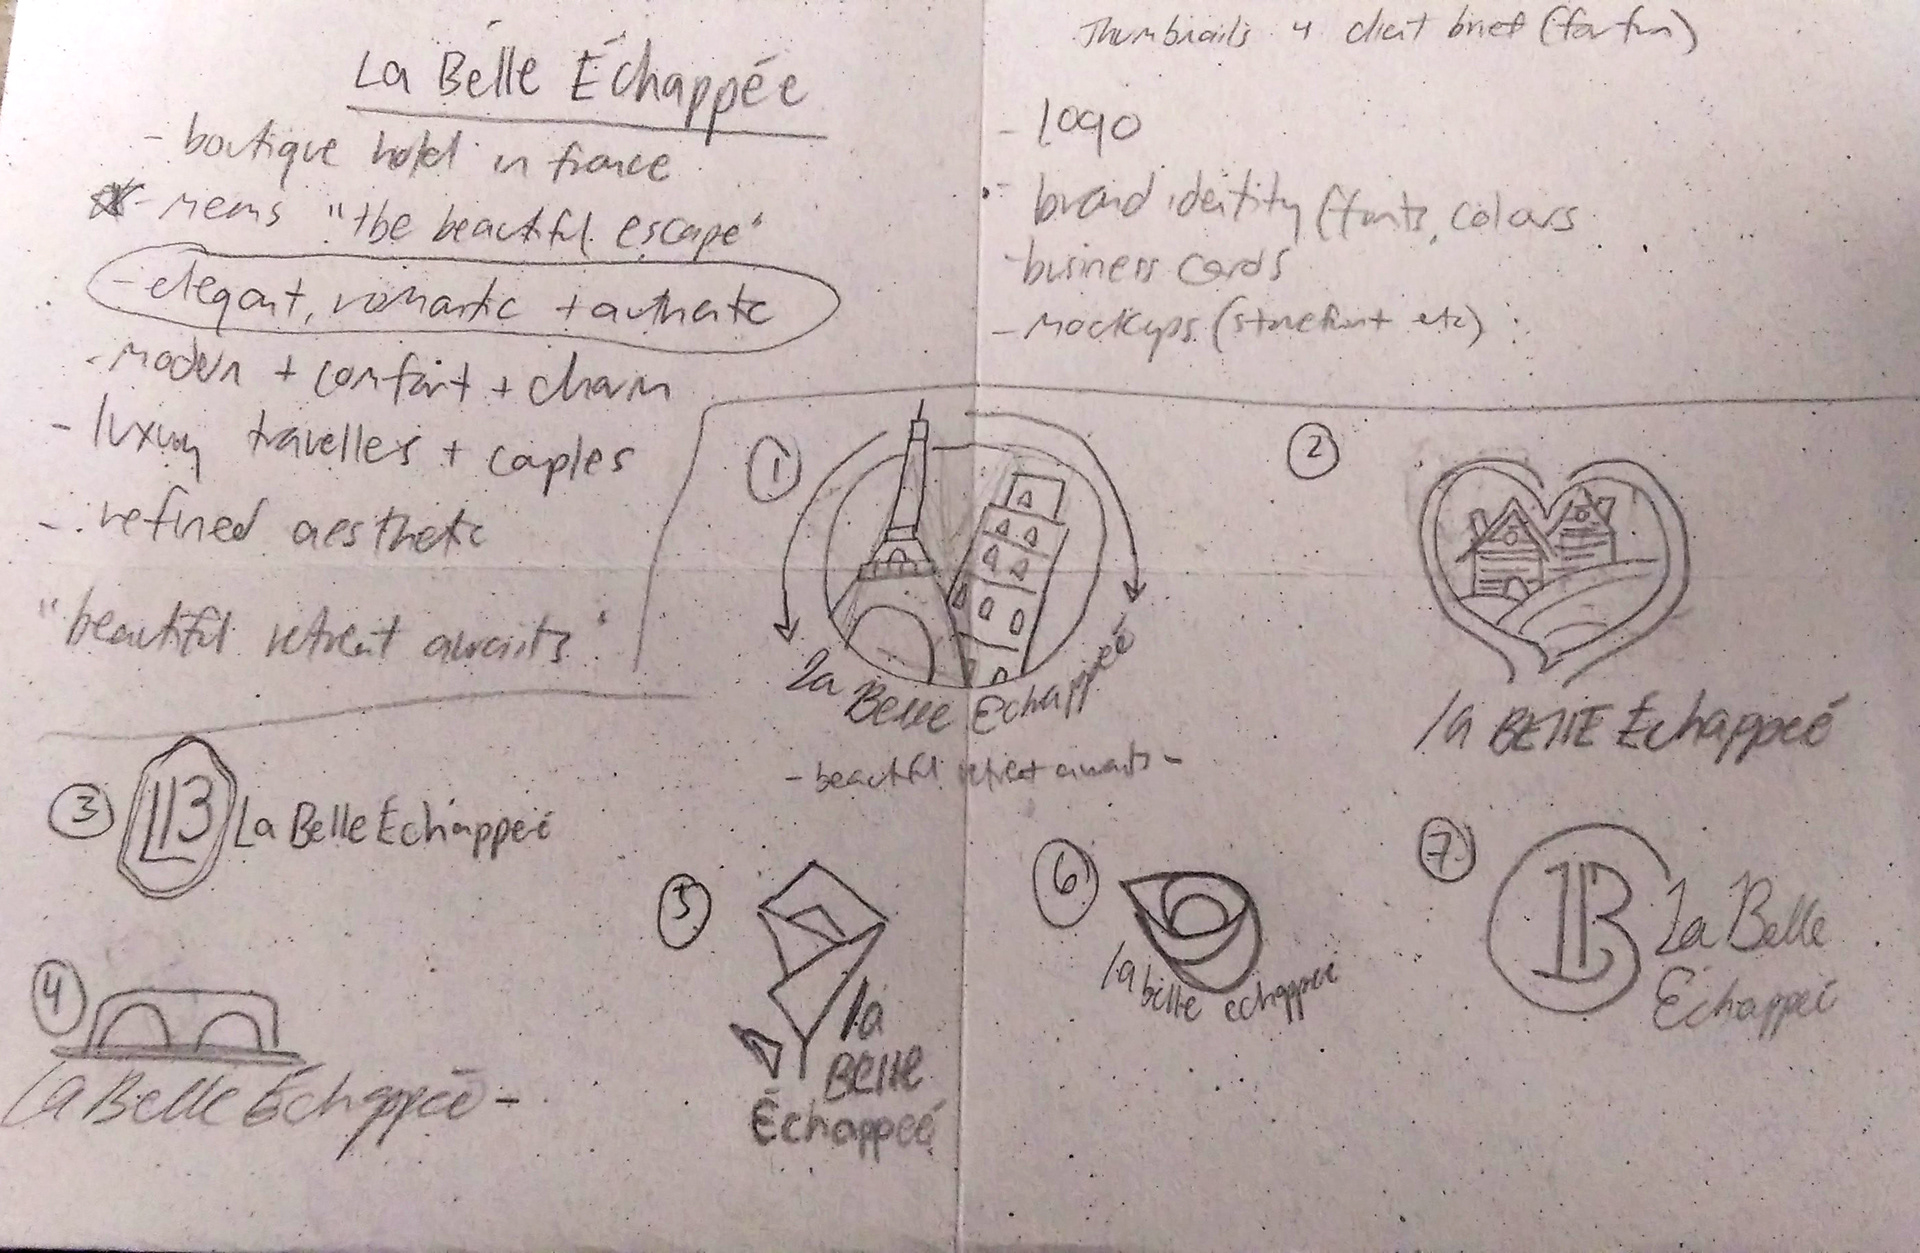 La Belle Échappée
- boutique hotel in france
- means "the beautiful escape"
- elegant, romantic + authentic
- modern + comfort + charm
- luxury travellers + couples
- refined aesthetic
"beautiful retreat awaits"
Thumbnails 4 client brief (for fun)
- logo
- brand identity (fonts, colours
- business cards
- mockups (storefront etc)
1
La Belle Échappeé
- beautiful retreat awaits -
2
la BELLE Échappeé
3
LB La Belle Echappeé
4
La Belle Échappée -
5
la
BELLE
Échappeé
6
la belle echappeé
7
LB La Belle
Échappeé